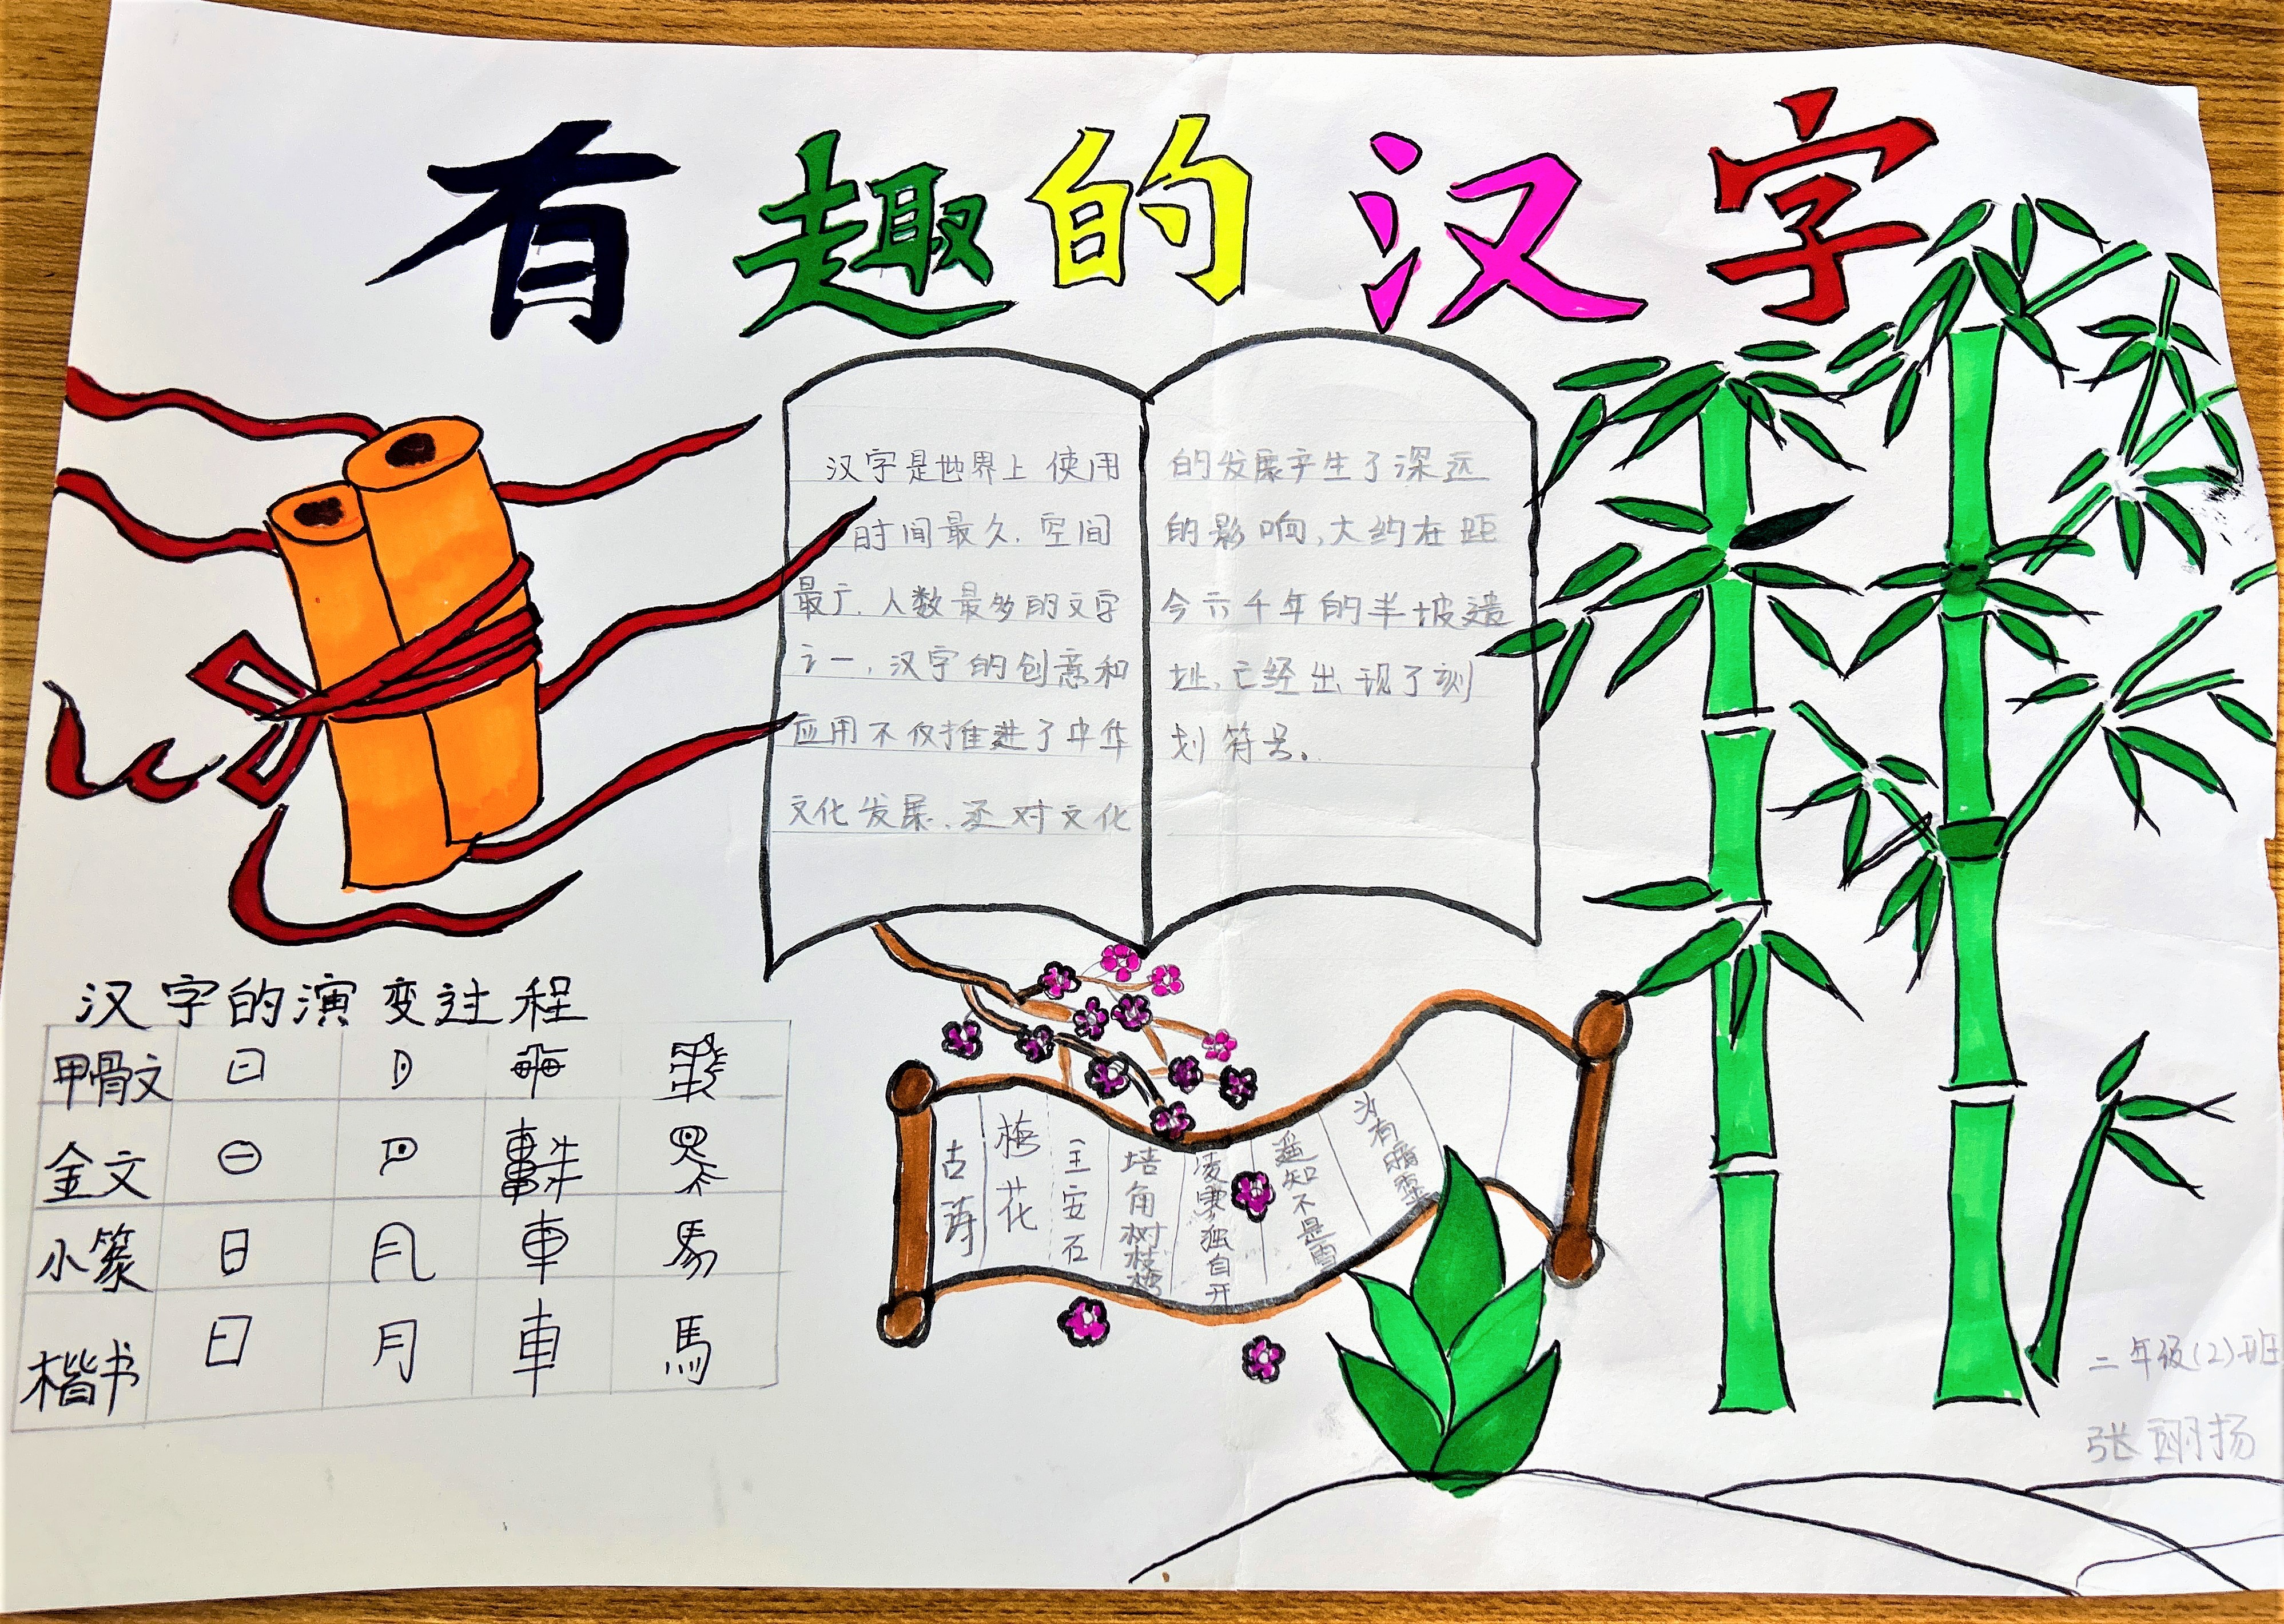 有趣的汉字
汉字是世界上使用
时间最久.空间
最广.人数最多的文字
之一,汉字的创意和
应用不仅推进了中华
文化发展.还对文化
的发展产生了深远
的影响,大约在距
今六千年的半坡遗
址,已经出现了刻
划符号。
汉字的演变过程
甲骨文
金文
小篆
楷书 日 月 車 馬
古诗
梅花
王安石
培角树枝梅
凌寒独自开
遥知不是雪
为有暗香
二年级(2)班
张翊扬